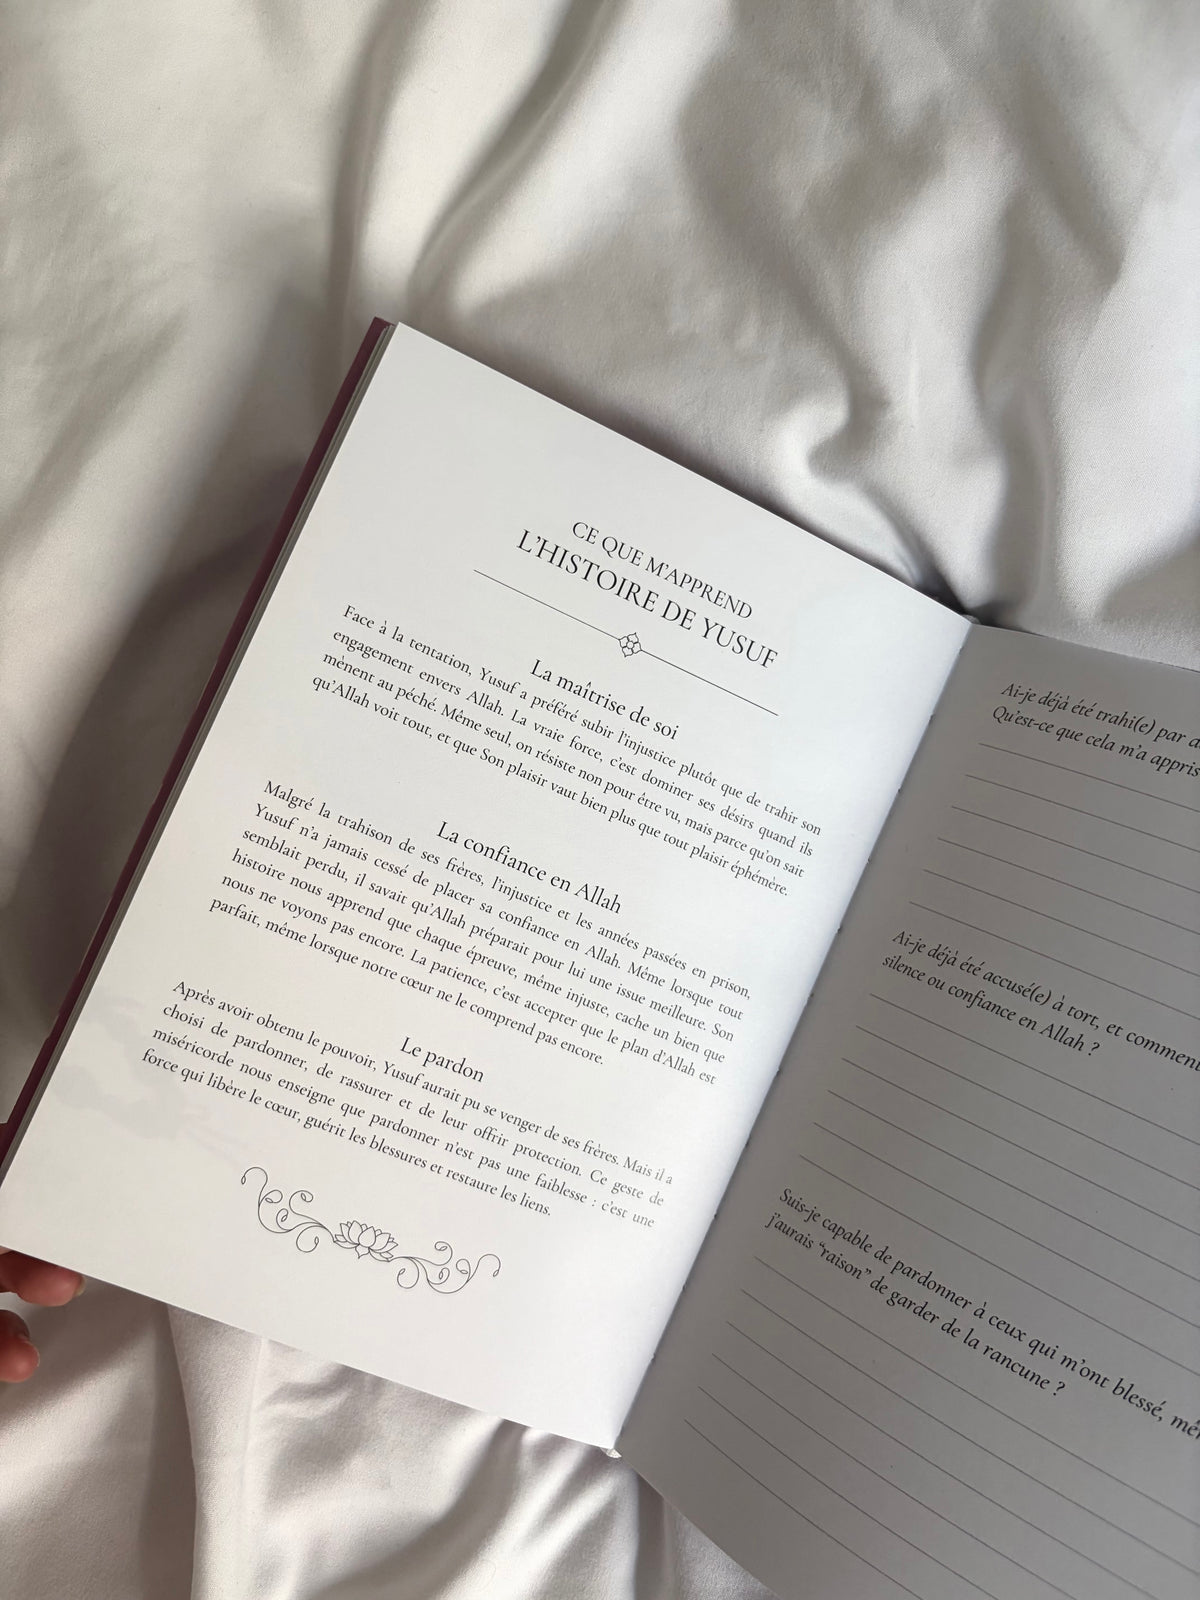 CE QUE M'APPREND
L'HISTOIRE DE YUSUF
La maîtrise de soi
Face à la tentation, Yusuf a préféré subir l'injustice plutôt que de trahir son
engagement envers Allah. La vraie force, c'est dominer ses désirs quand ils
mènent au péché. Même seul, on résiste non pour être vu, mais parce qu'on sait
qu'Allah voit tout, et que Son plaisir vaut bien plus que tout plaisir éphémère.
La confiance en Allah
Malgré la trahison de ses frères, l'injustice et les années passées en prison,
Yusuf n'a jamais cessé de placer sa confiance en Allah. Même lorsque tout
semblait perdu, il savait qu'Allah préparait pour lui une issue meilleure. Son
histoire nous apprend que chaque épreuve, même injuste, cache un bien que
nous ne voyons pas encore. La patience, c'est accepter que le plan d'Allah est
parfait, même lorsque notre cœur ne le comprend pas encore.
Le pardon
Après avoir obtenu le pouvoir, Yusuf aurait pu se venger de ses frères. Mais il a
choisi de pardonner, de rassurer et de leur offrir protection. Ce geste de
miséricorde nous enseigne que pardonner n'est pas une faiblesse : c'est une
force qui libère le cœur, guérit les blessures et restaure les liens.
Ai-je déjà été trahi(e) par
Qu'est-ce que cela m'a appris
Ai-je déjà été accusé(e) à tort, et comment
silence ou confiance en Allah ?
Suis-je capable de pardonner à ceux qui m'ont blessé,
j'aurais "raison" de garder de la rancune ?